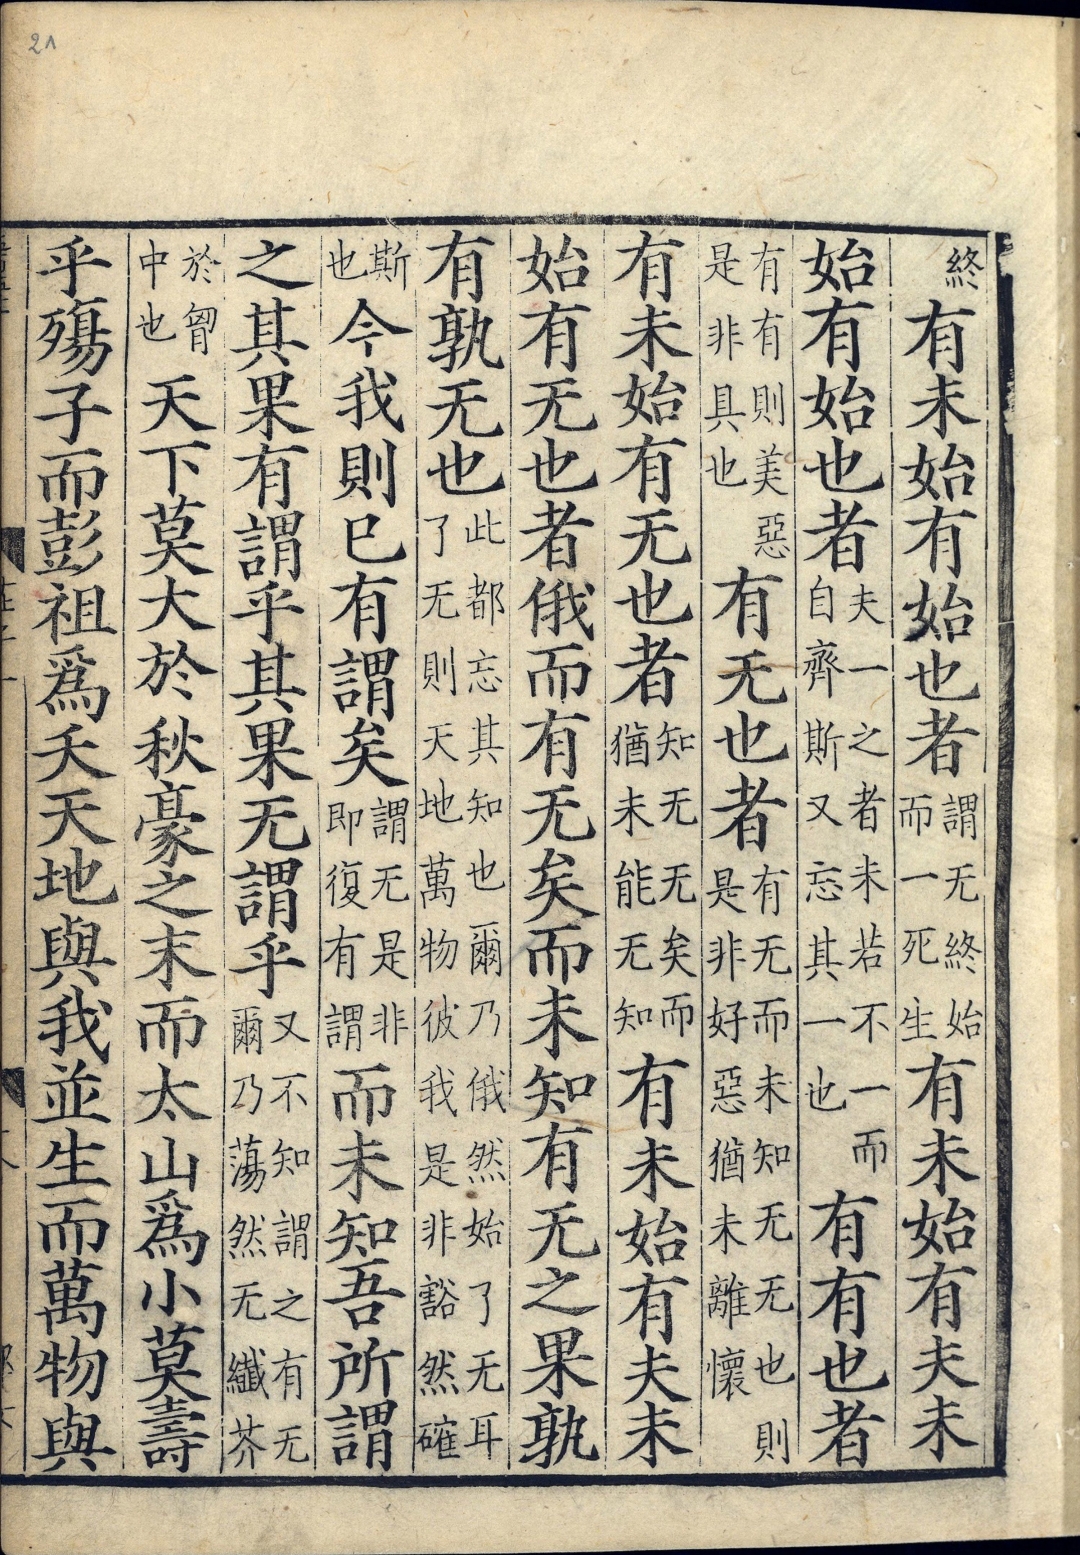 21
終有未始有始也者謂无終始而一死生有未始有夫未
始有始也者夫一之者未若不一而自齊斯又忘其一也有有也者
有有則美惡是非具也有无也者有无而未知无无也則是非好惡猶未離懷
有未始有无也者知无无矣而猶未能无知有未始有夫未
始有无也者俄而有无矣而未知有无之果孰
有孰无也此都忘其知也爾乃俄然始了无耳了无則天地萬物彼我是非豁然確
斯也今我則已有謂矣謂无是非即復有謂而未知吾所謂
之其果有謂乎其果无謂乎又不知謂之有无爾乃蕩然无纖芥
於胷中也天下莫大於秋豪之末而太山爲小莫壽
乎殤子而彭祖爲夭天地與我並生而萬物與